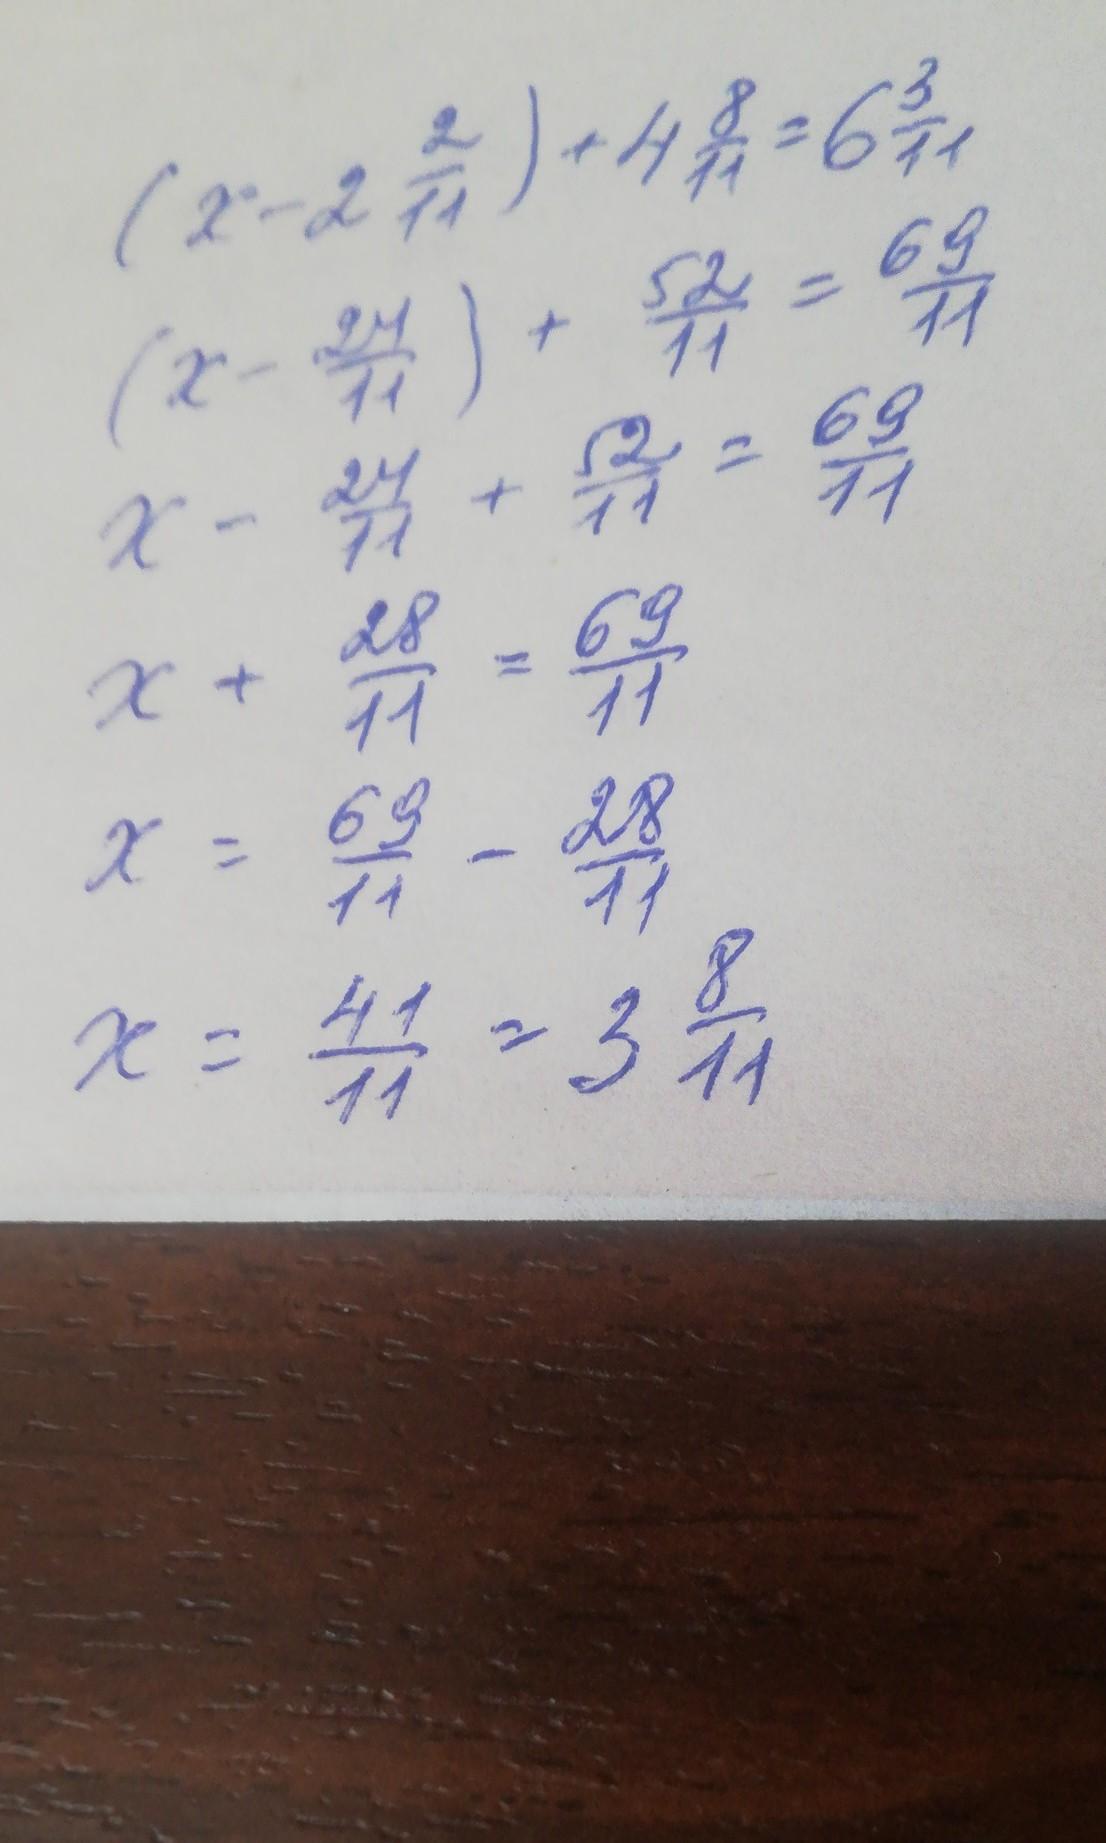 (x - 2 2/11) + 4 8/11 = 6 3/11
(x - 24/11) + 52/11 = 69/11
x - 24/11 + 52/11 = 69/11
x + 28/11 = 69/11
x = 69/11 - 28/11
x = 41/11 = 3 8/11